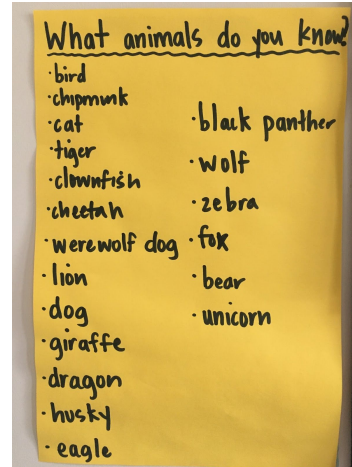 What animals do you know?
·bird
·chipmunk
·cat
·tiger
·clownfish
·cheetah
·werewolf dog
·lion
·dog
·giraffe
·dragon
·husky
·eagle
·black panther
·wolf
·zebra
·fox
·bear
·unicorn